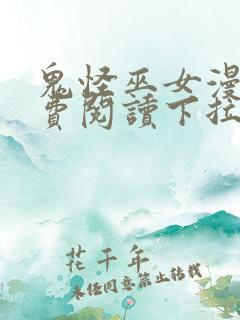 鬼怪巫女漫
費閱讀下拉
花千年
未經同意禁止轉載